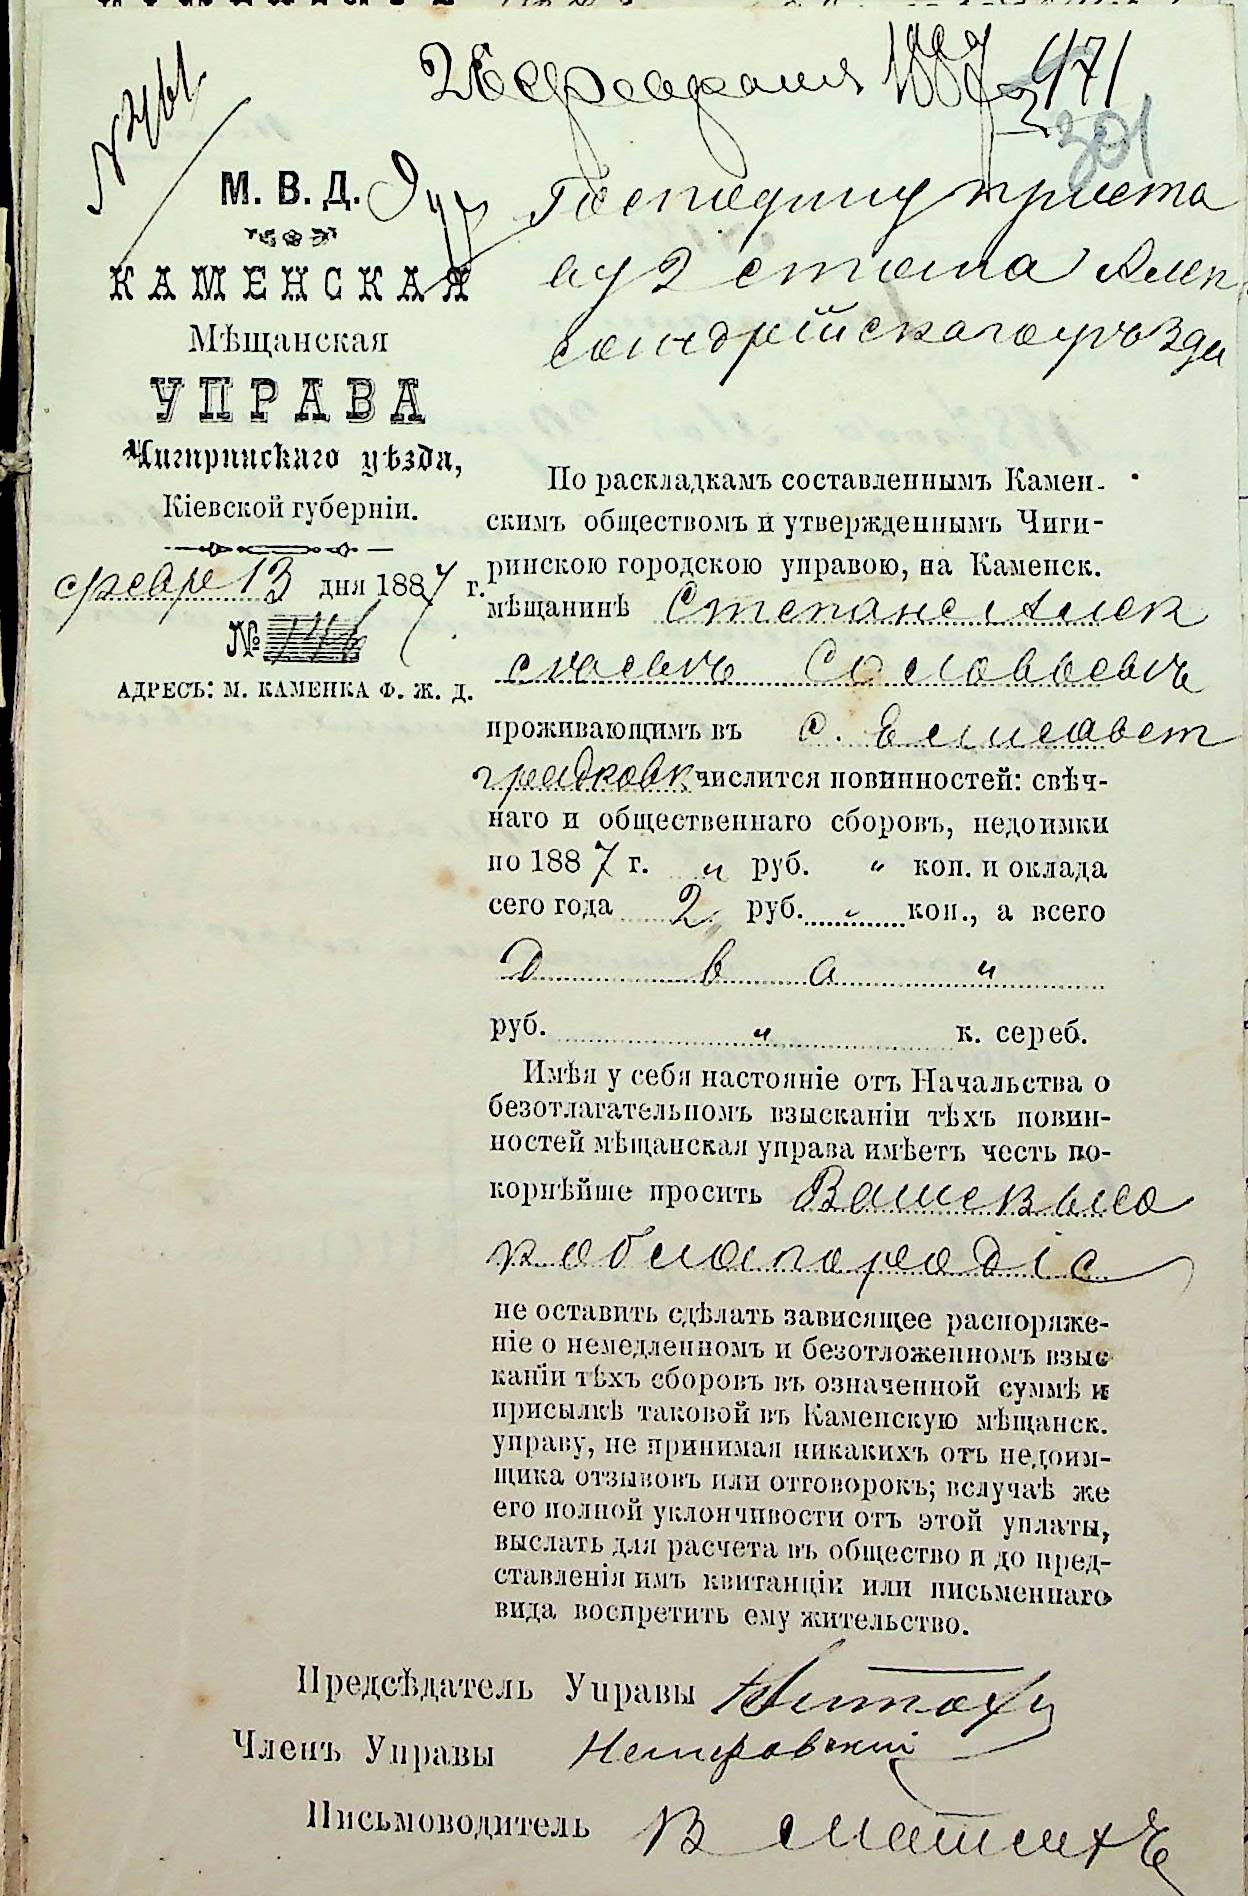 26 февраля 1887 471
№ 2461
301
М. В. Д.
КАМЕНСКАЯ
Мѣщанская
УПРАВА
Чигиринскаго уѣзда,
Кіевской губерніи.
февр 13 дня 1887 г.
№ 746
АДРЕСЪ: М. КАМЕНКА Ф. Ж. Д.
Господину приста
ву 2 стана Алек
сандрійскаго уѣзда
По раскладкамъ составленнымъ Камен-
скимъ обществомъ и утвержденнымъ Чиги-
ринскою городскою управою, на Каменск.
мѣщанинѣ Степане Алек
сѣевѣ Соловьевѣ
проживающимъ въ с. Елисавет
градковк числится повинностей: свѣч-
наго и общественнаго сборовъ, недоимки
по 1887 г. " руб. " коп. и оклада
сего года 2 руб. " коп., а всего
Два "
руб. " к. сереб.
Имѣя у себя настояніе отъ Начальства о
безотлагательномъ взысканіи тѣхъ повин-
ностей мѣщанская управа имѣетъ честь по-
корнѣйше просить Ваше высо
коблагородіе
не оставить сдѣлать зависящее распоряже-
ніе о немедленномъ и безотложенномъ взыс
каніи тѣхъ сборовъ въ означенной суммѣ и
присылкѣ таковой въ Каменскую мѣщанск.
управу, не принимая никакихъ отъ недоим-
щика отзывовъ или отговорокъ; вслучаѣ же
его полной уклончивости отъ этой уплаты,
выслать для расчета въ общество и до пред-
ставленія имъ квитанціи или письменнаго
вида воспретить ему жительство.
Предсѣдатель Управы
Членъ Управы Немировскій
Письмоводитель В